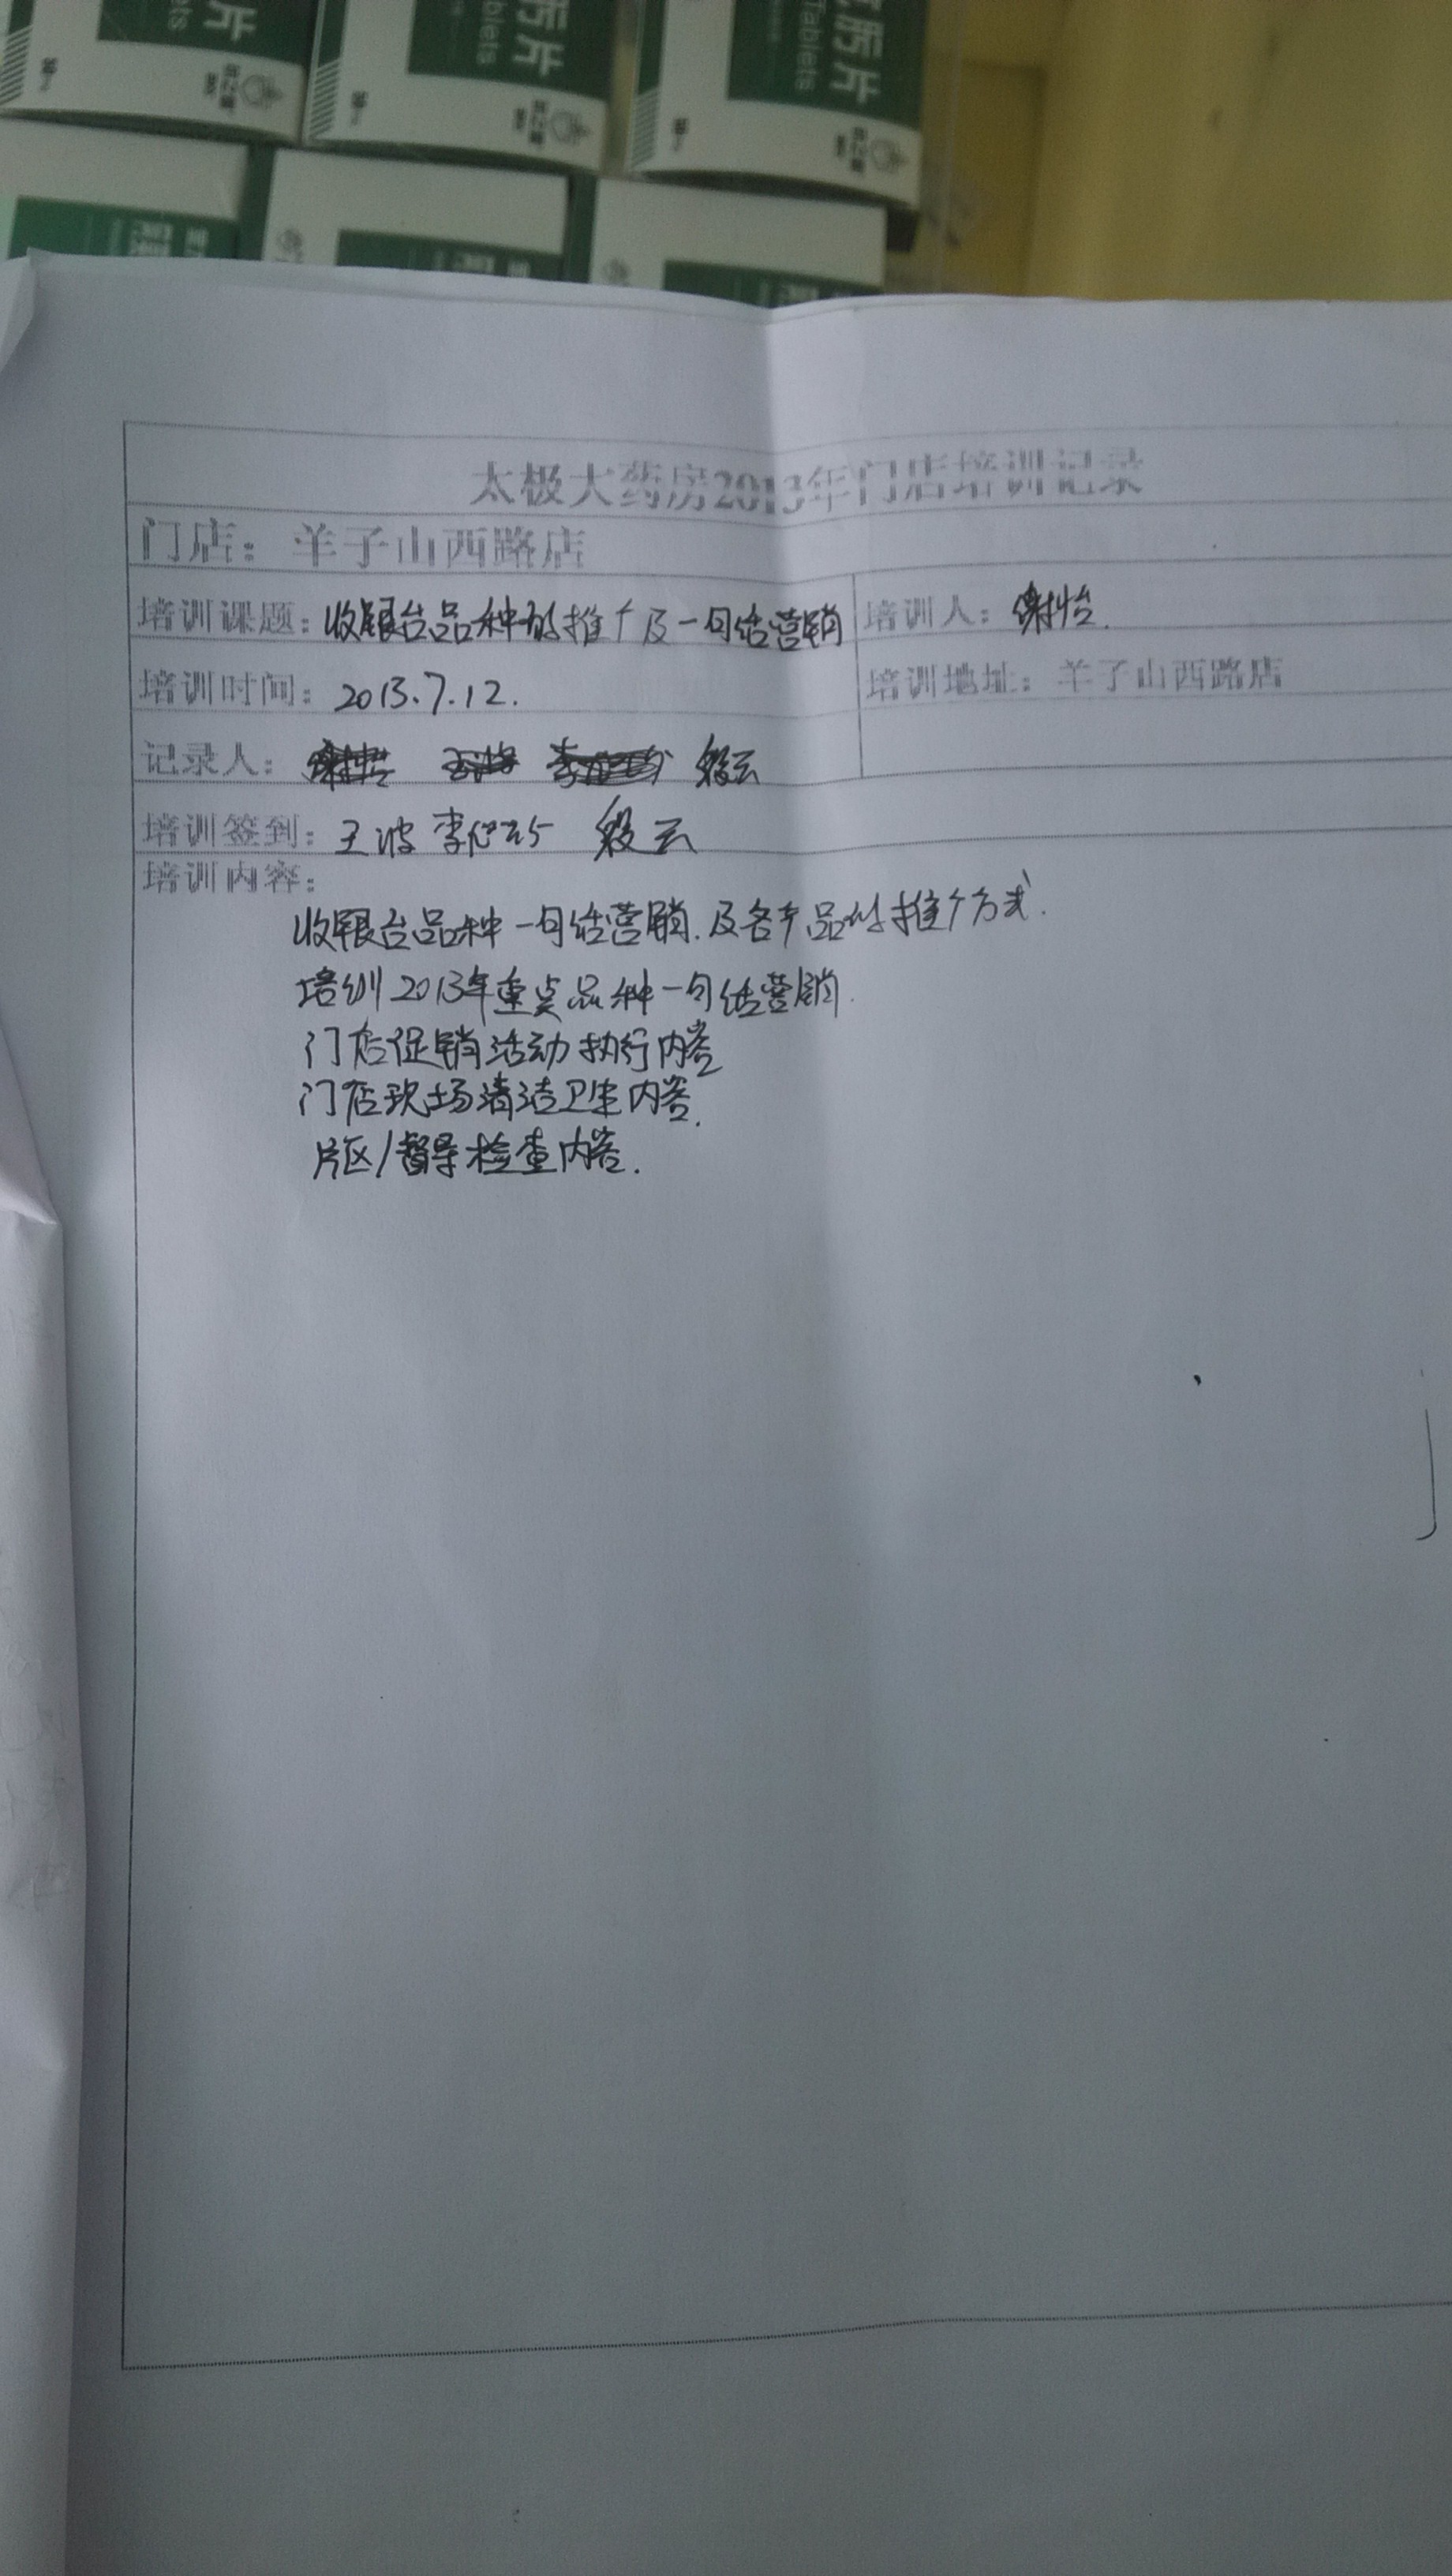 片
片
Tablets
片
Tablets
太极大药房2013年门店培训记录
门店：羊子山西路店
培训课题：收银台品种的推广及一句话营销
培训人：谢怡.
培训时间：2013.7.12.
培训地址：羊子山西路店
记录人：殷云
培训签到：王波 殷云
培训内容：
收银台品种一句话营销.及各产品的推广方式.
培训2013年重点品种一句话营销.
门店促销活动执行内容
门店现场清洁卫生内容.
片区/督导检查内容.